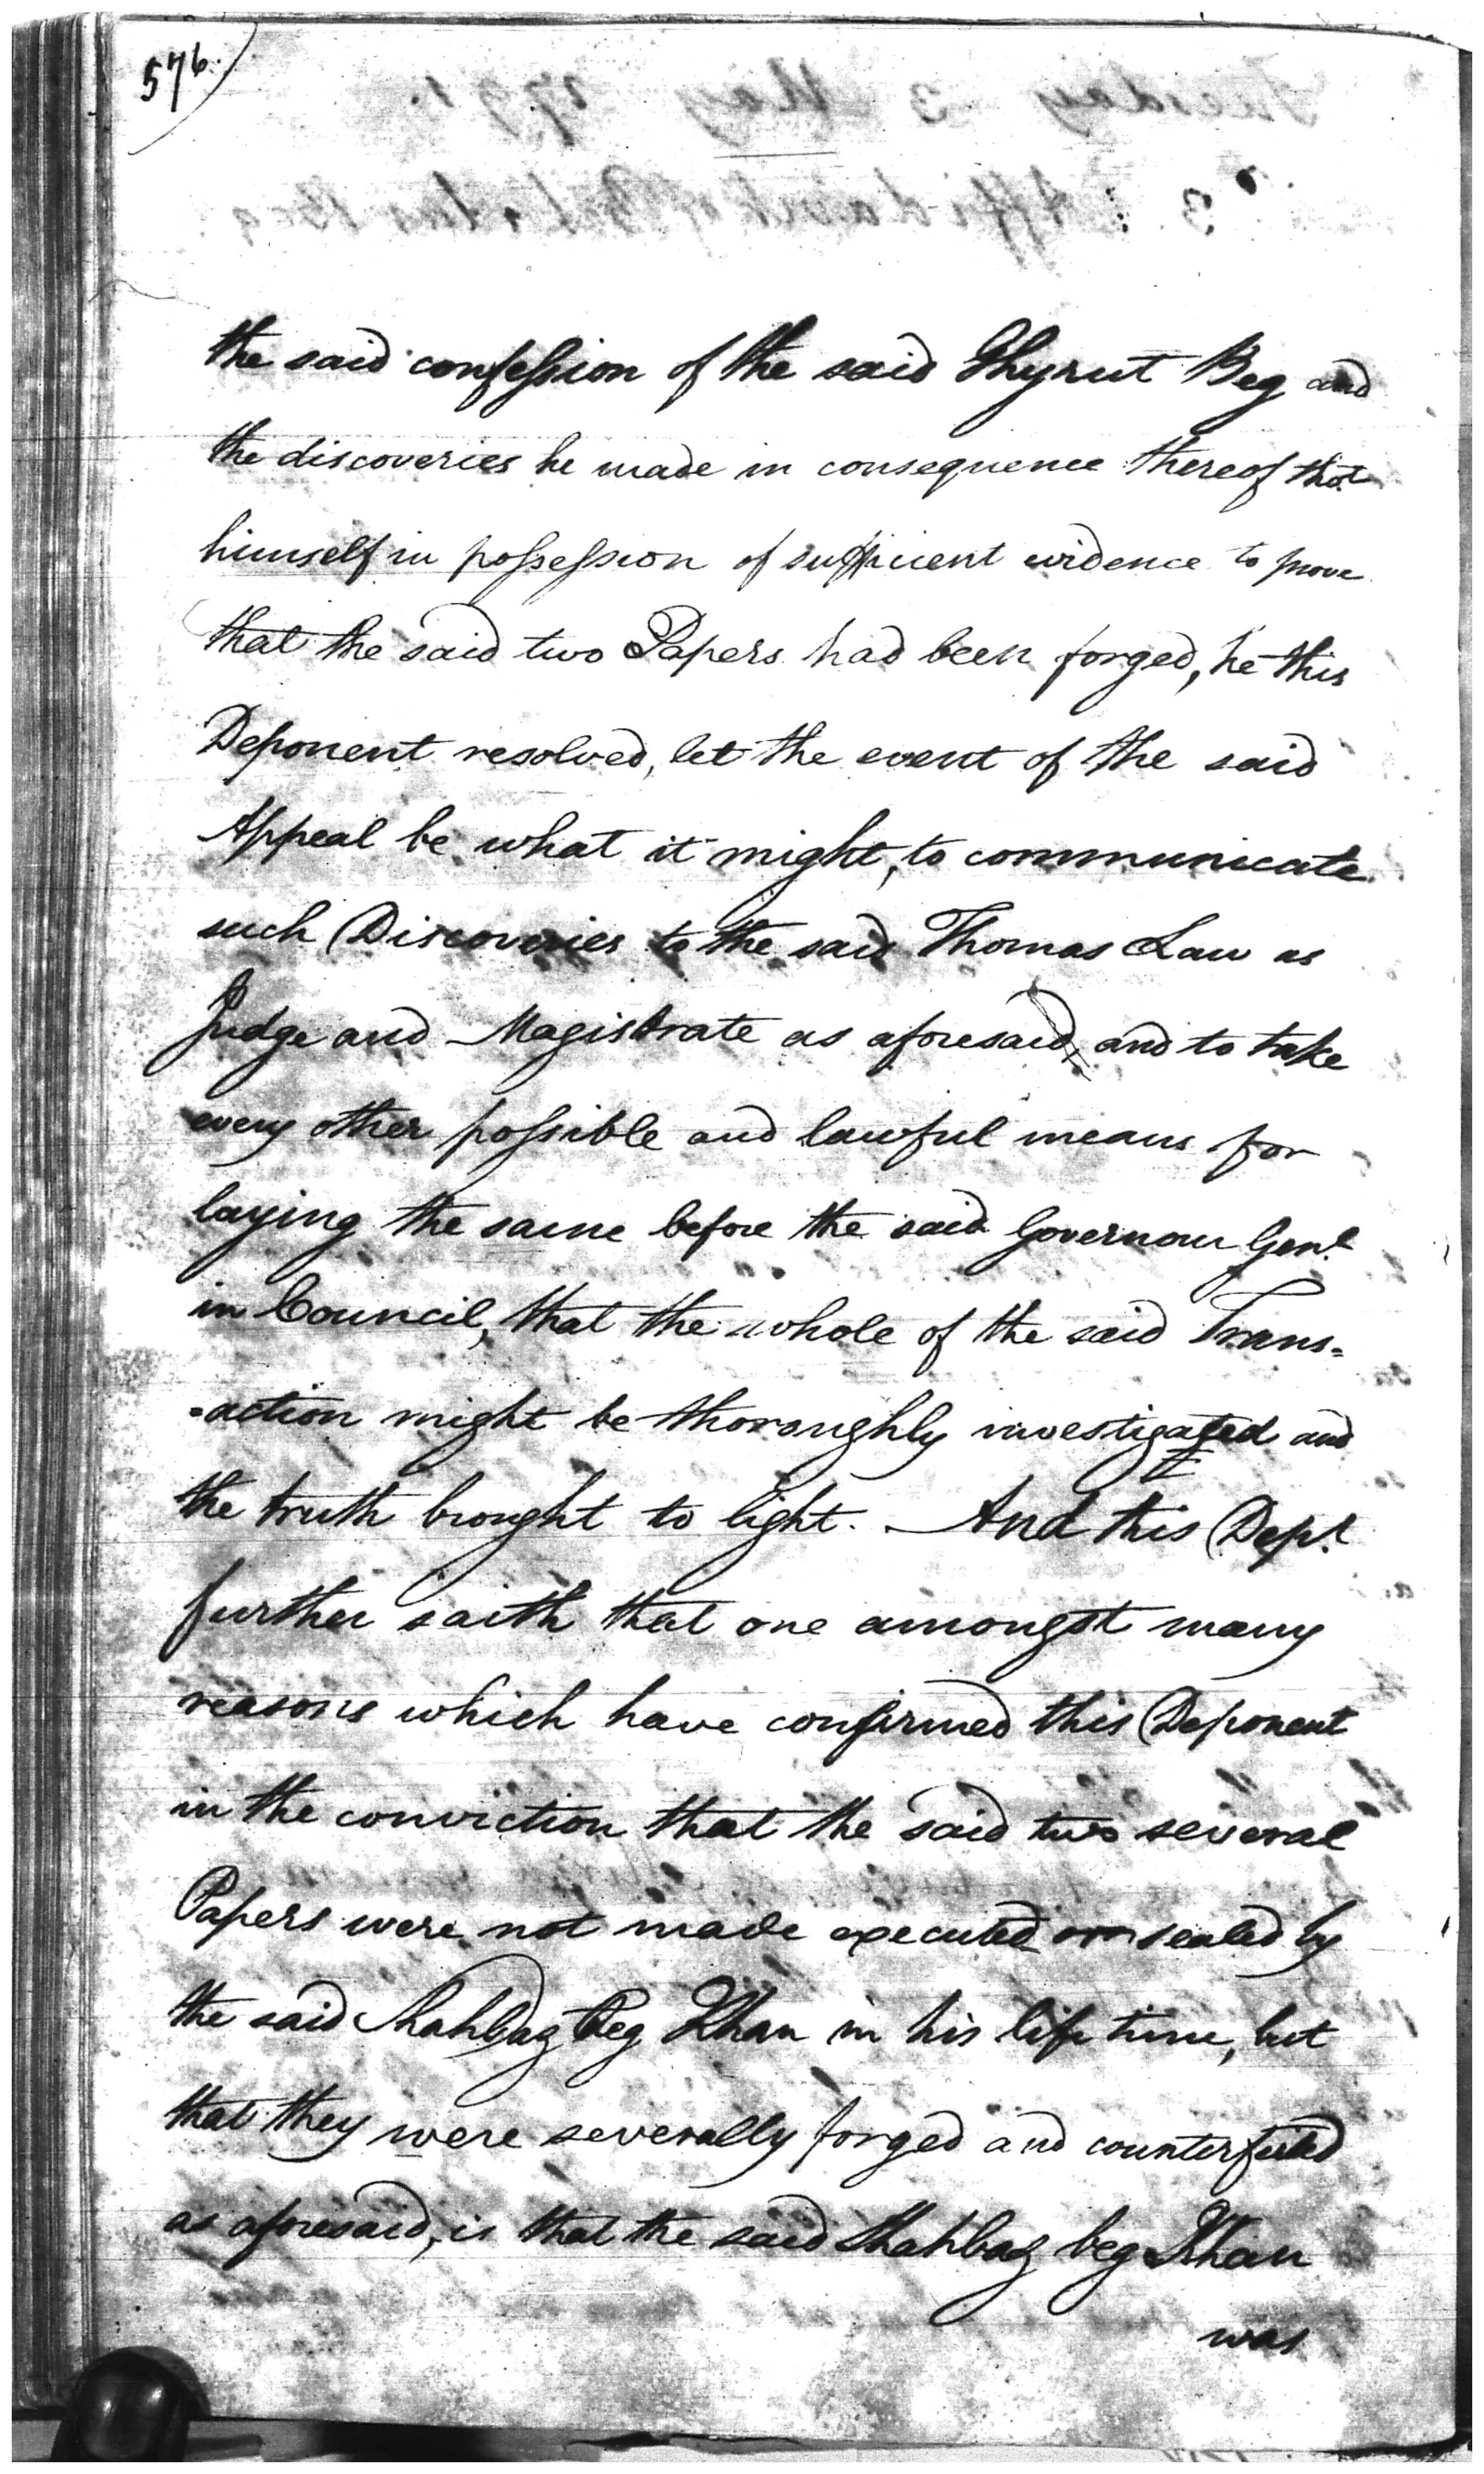 576.
the said confession of the said Ghyrut Beg and
the discoveries he made in consequence thereof thot
himself in possession of sufficient evidence to prove
that the said two Papers had been forged, he this
Deponent resolved, let the event of the said
Appeal be what it might, to communicate
such Discoveries to the said Thomas Law as
Judge and Magistrate as aforesaid, and to take
every other possible and lawful means for
laying the same before the said Governour Genl.
in Council, that the whole of the said Trans=
=action might be thoroughly investigated and
the truth brought to light. And this Dept.
further saith that one amongst many
reasons which have confirmed this Deponent
in the conviction that the said two several
Papers were not made executed or sealed by
the said Shahbaz Beg Khan in his life time, but
that they were severally forged and counterfeited
as aforesaid, is that the said Shahbaz beg Khan
was